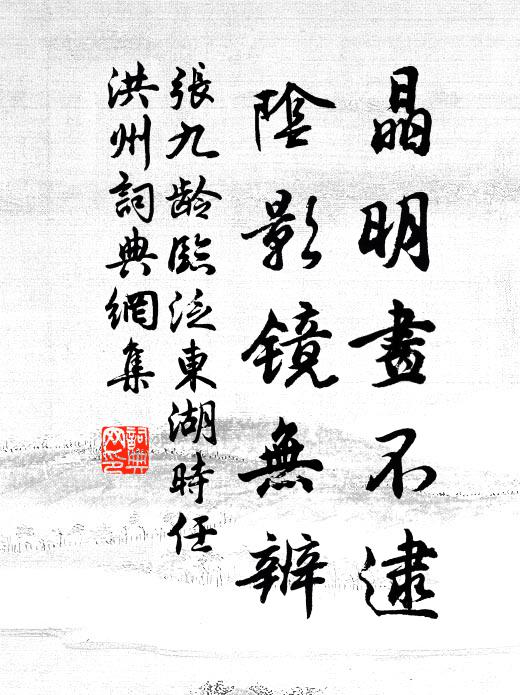 晶明畫不逮
陰影镜無辨
張九龄臨泛東湖時任
洪州詞典網集
詞典网印